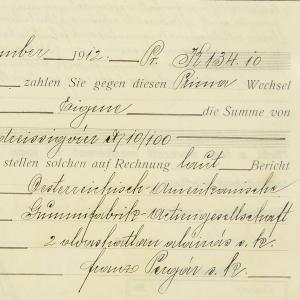 ember 1912 Pr. K 134.10
zahlen Sie gegen diesen Prima Wechsel
Eigene die Summe von
dreissigvier 10/100
stellen solchen auf Rechnung laut Bericht
Oesterreichisch-Amerikanische
Gummifabrik-Actiengesellschaft
2 olvashatlan aláírás s. k.
Franz s. k.